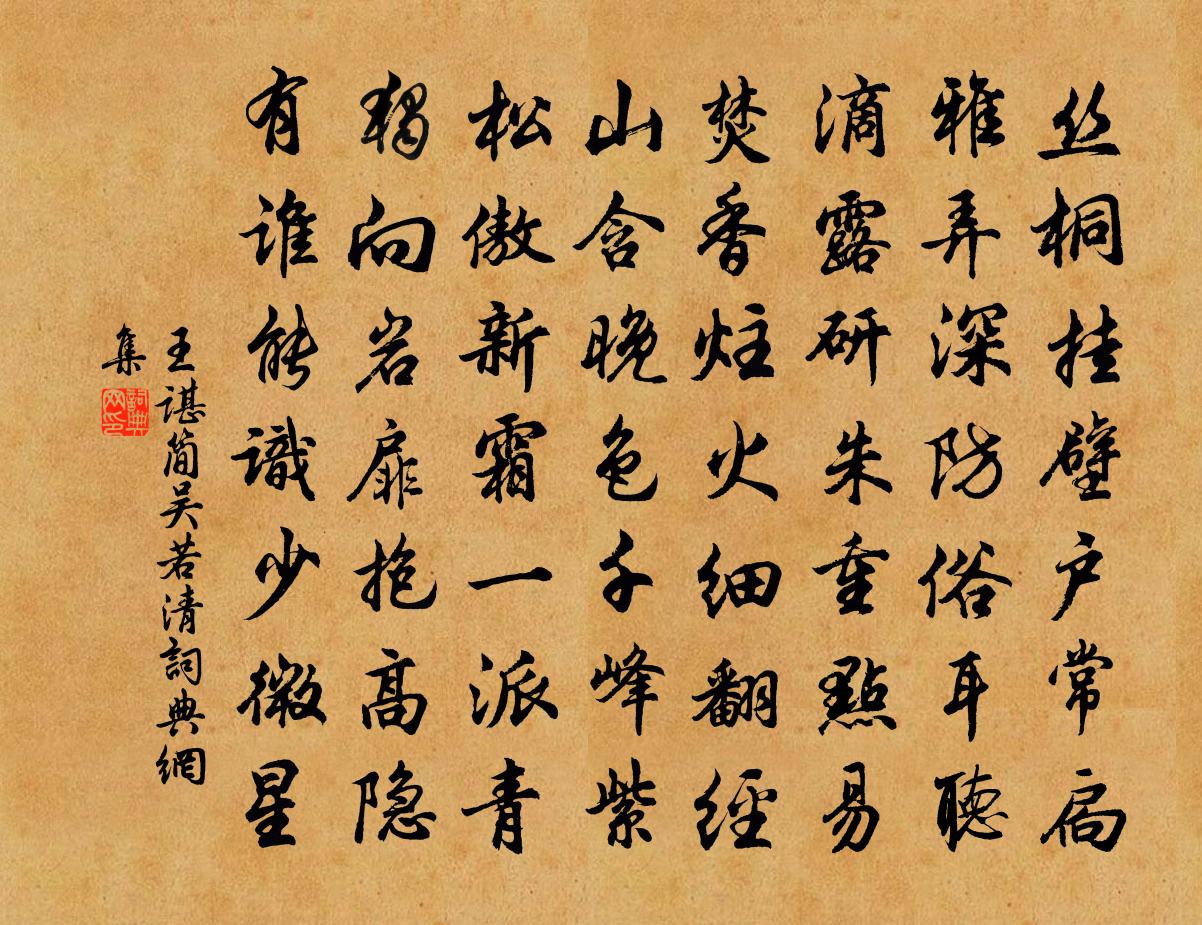 丝桐挂壁户常扃
雅弄深防俗耳聽
滴露研朱重點易
焚香炷火细翻經
山含晚色千峰紫
松傲新霜一派青
独向岩扉抱高隐
有谁能識少微星
王谌简吴若清詞典網
集
詞典网印